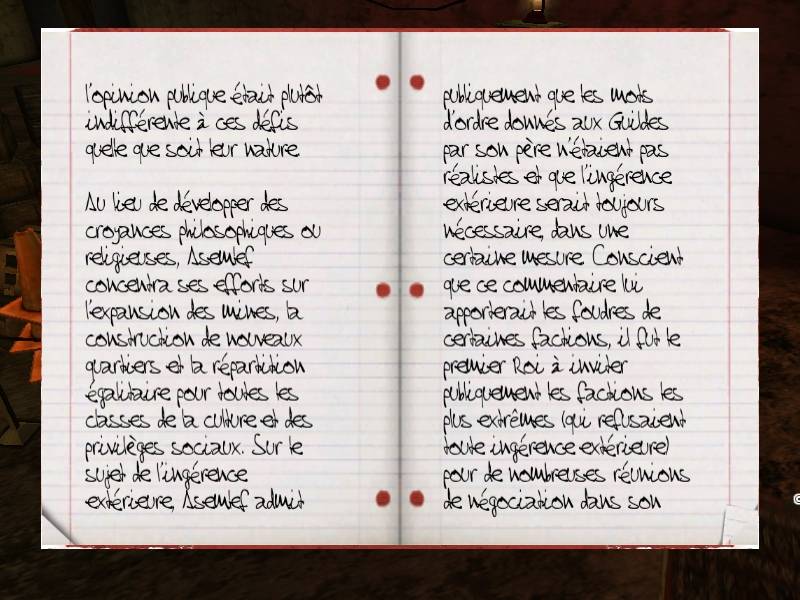 l'opinion publique était plutôt
indifférente à ces défis
quelle que soit leur nature.
Au lieu de développer des
croyances philosophiques ou
religieuses, Asemlef
concentra ses efforts sur
l'expansion des mines, la
construction de nouveaux
quartiers et la répartition
égalitaire pour toutes les
classes de la culture et des
privilèges sociaux. Sur le
sujet de l'ingérence
extérieure, Asemlef admit
publiquement que les mots
d'ordre donnés aux Guildes
par son père n'étaient pas
réalistes et que l'ingérence
extérieure serait toujours
nécessaire, dans une
certaine mesure. Conscient
que ce commentaire lui
apporterait les foudres de
certaines factions, il fut le
premier Roi à inviter
publiquement les factions les
plus extrêmes (qui refusaient
toute ingérence extérieure)
pour de nombreuses réunions
de négociation dans son